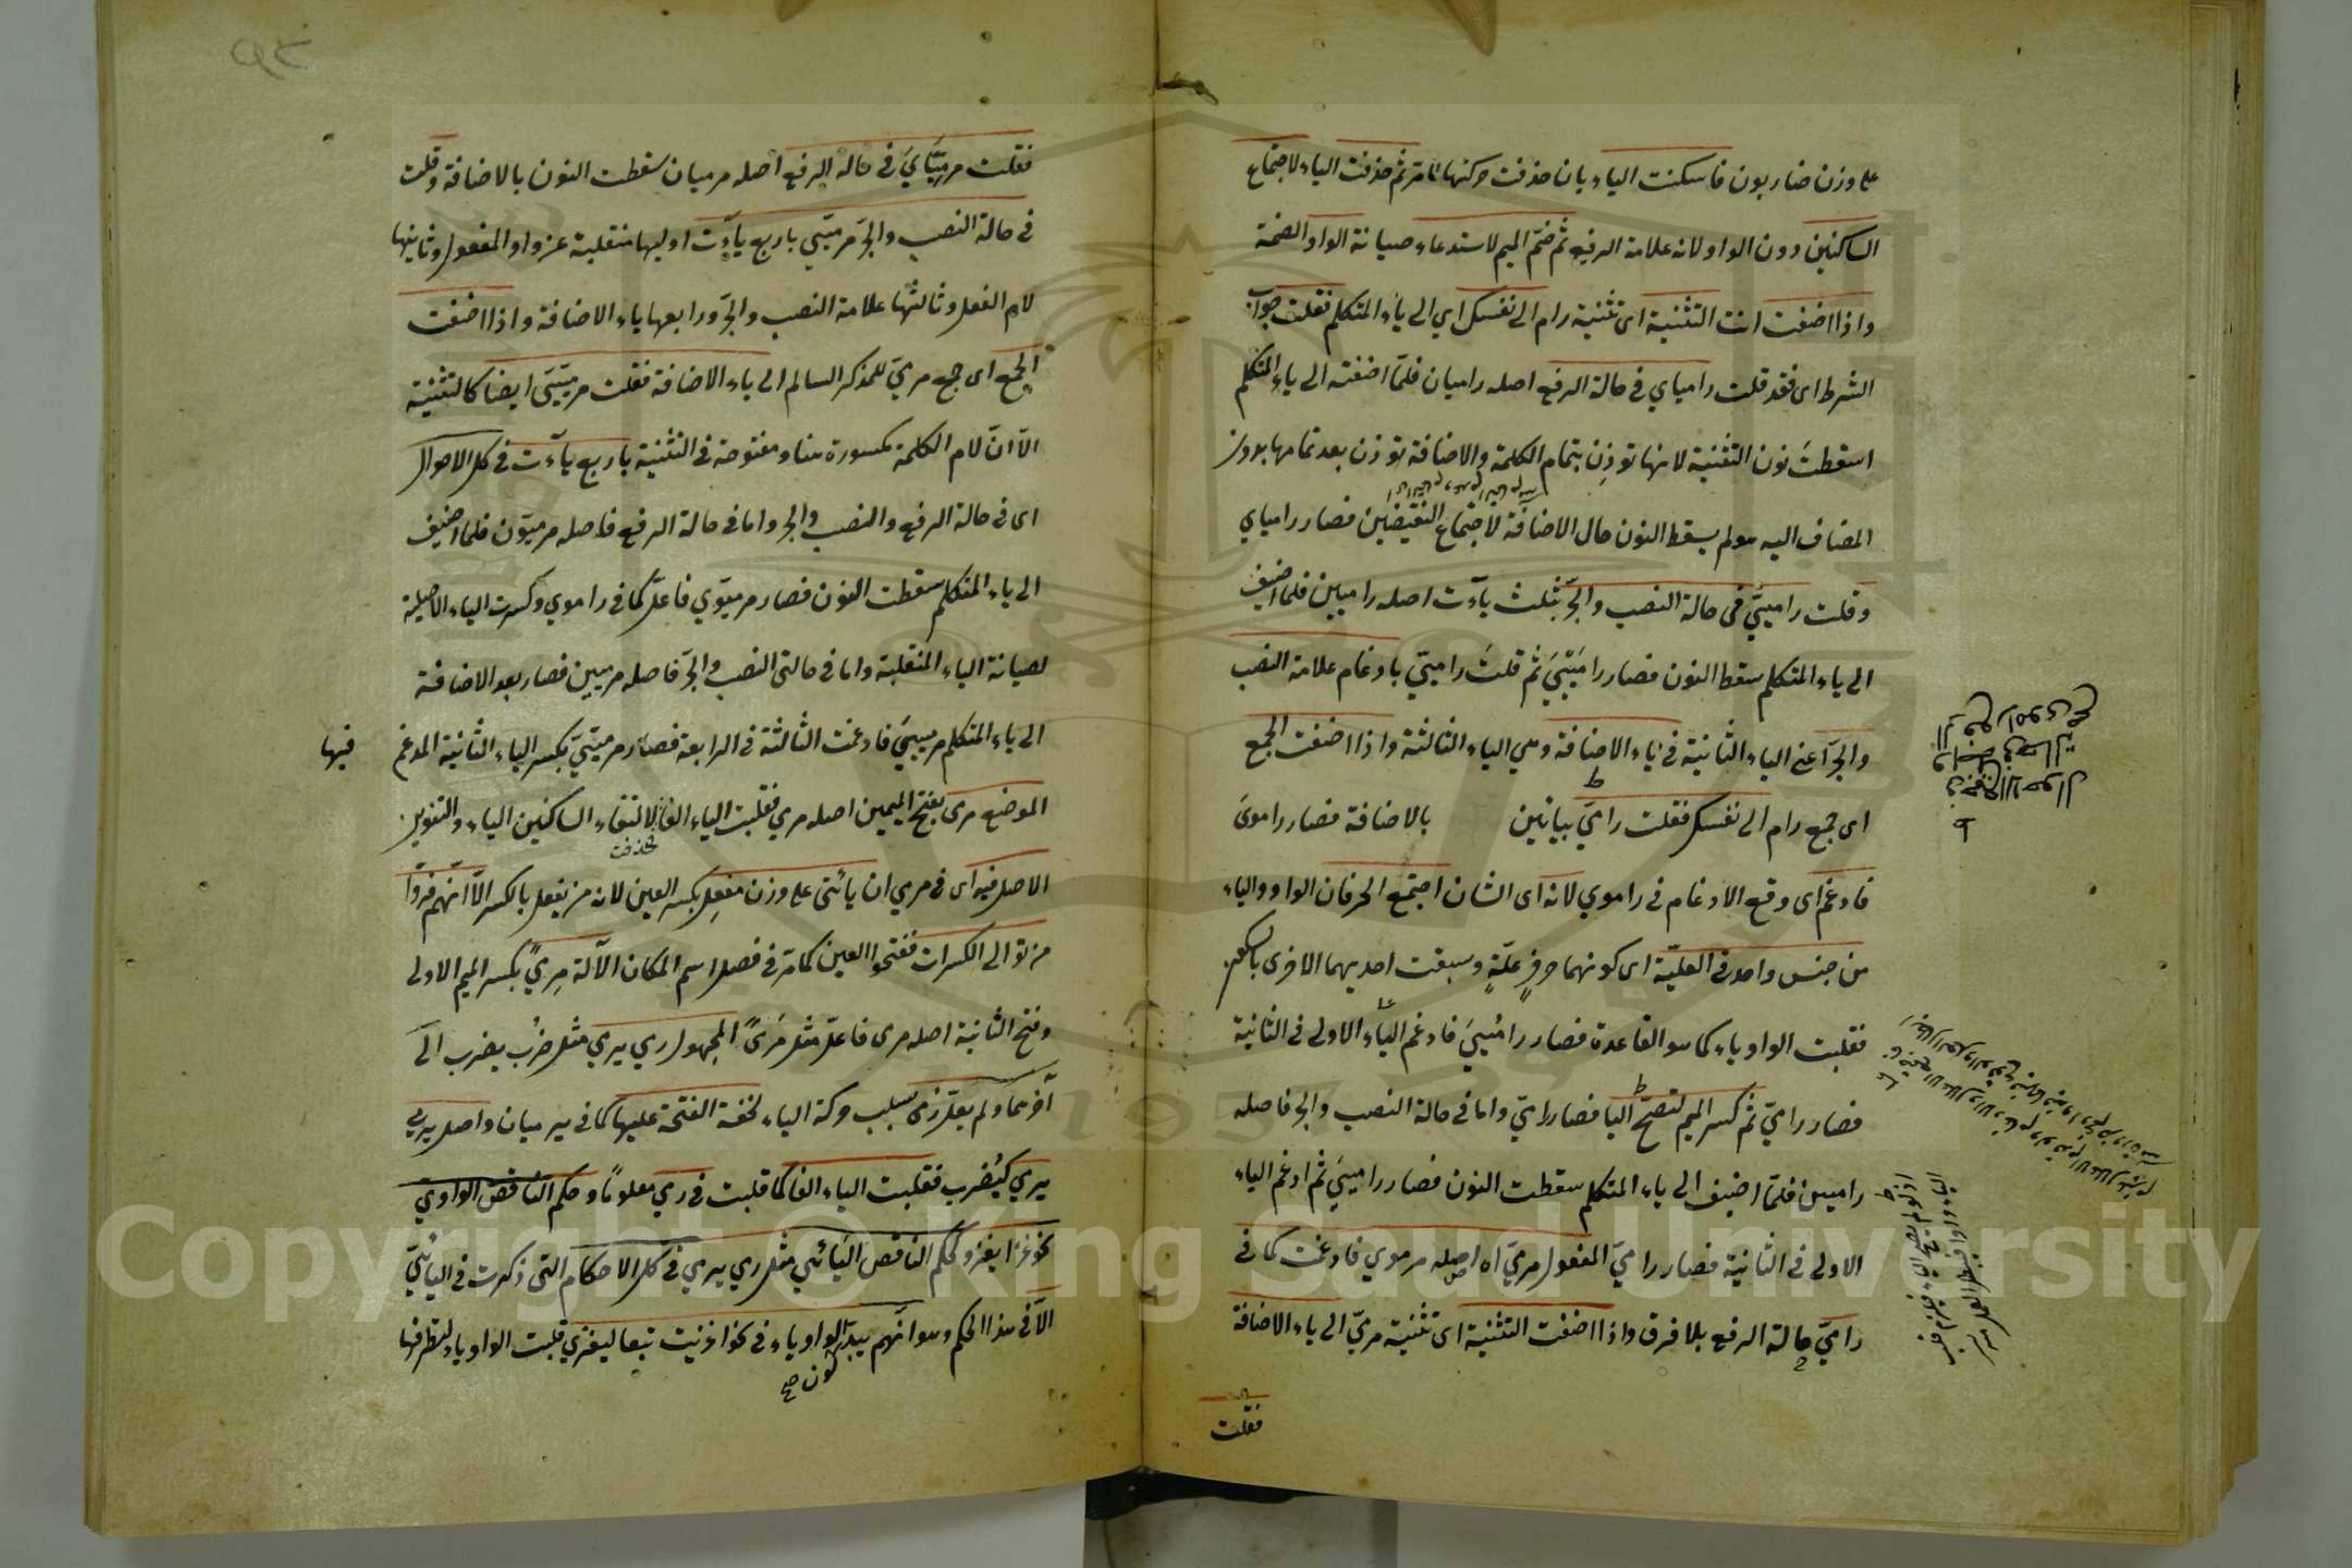 على وزن ضاربون فاسكنت الياء بان حذفت حركتها لما مر ثم حذفت الياء لاجتماع
الساكنين دون الواو لانه علامة الرفع ثم ضمّ الميم لاستدعاء صيانة الواو الضمة
واذا اضفت انت التثنية اى تثنية رام الى نفسك اي الى ياء المتكلم فقلت جواب
الشرط اى فقد قلت رامياي في حالة الرفع اصله راميان فلمّا اضفته الى ياء المتكلم
اسقطتَ نون التثنية لانها توذِن بتمام الكلمة والاضافة توذن بعد تمامها بدون
المضاف اليه ولم يسقط النون حال الاضافة لاجتماع النقيضين فصار رامياي
وقلت راميىَّ في حالة النصب والجرّ بثلث ياآت اصله راميين فلما اضيف
الى ياء المتكلم سقط النون فصار رامَيْيىَ ثم قلتَ راميىّ بادغام علامة النصب
والجرّ اعني الياء الثانية في ياء الاضافة وهي الياء الثالثة واذا اضفت الجمع
اى جمع رام الى نفسك فقلت راميّ بيائين بالاضافة فصار راموىَ
فادغم اى وقع الادغام في راموي لانه اى الشان اجتمع الحرفان الواو والياء
من جنس واحد في العليّة اى كونهما حرفى علّةٍ وسبقت احديهما الاخرى بالسكون
فقلبت الواو ياء كما هو القاعدة فصار رامُييَ فادغم الياء الاولى في الثانية
فصار راميّ ثم كسر الميم لتصحّ اليا فصار راميّ واما في حالة النصب والجر فاصله
راميين فلمّا اضيف الى ياء المتكلم سقطت النون فصار راميىَ ثم ادغم الياء
الاولى في الثانية فصار راميّ المفعول مرميّ اه اصله مرموي فادغمت كما في
راميّ حالة الرفع بلا فرق واذا اضفت التثنية اى تثنية مرميّ الى ياء الاضافة
فقلت
فقلت مرميّايَ في حالة الرفع اصله مرميان سقطت النون بالاضافة وقلت
في حالة النصب والجرّ مرميّيي باربع ياآت اوليها منقلبة عن واو المفعول وثانيتها
لام الفعل وثالثها علامة النصب والجرّ ورابعها ياء الاضافة واذا اضفت
الجمع اى جمع مرميّ للمذكر السالم الى ياء الاضافة فقلت مرميّيَّ ايضا كالتثنية
الاّ انّ لام الكلمة مكسورة هنا ومفتوحة في التثنية باربع ياآت في كل الاحوال
اى في حالة الرفع والنصب والجر واما في حالة الرفع فاصله مرميّون فلما اضيف
الى ياء المتكلم سقطت النون فصار مرميّوي فاعلّ كما في راموي وكسرت الياء الاصلية
لصيانة الياء المنقلبة واما في حالتى النصب والجرّ فاصله مرميين فصار بعد الاضافة
الى ياء المتكلم مرمييىَ فادغمت الثالثة في الرابعة فصار مرميّيّ بكسر الياء الثانية المدغم فيها
الموضع مرمى بفتح الميمين اصله مرمي فقلبت الياء الفا لالتقاء الساكنين الياء والتنوين
فحذفت
الاصل فيه اى في مرمي ان يأتى على وزن مفعِل بكسر العين لانه من يفعل بالكسر الاّ انّهم فروّا
من توالى الكسرات ففتحوا العين كما مرّ في فصل اسم المكان الآلة مِرمىً بكسر الميم الاولى
وفتح الثانية اصله مرمى فاعلّ مثل مَرمىً المجهول رمي يرمي مثل ضُرب يضرب الى
آخرهما ولم يعلّ رمى بسلب حركة الياء لخفة الفتحة عليها كما في يرميان واصل يرمي
يرمي كيُضرب فقلبت الياء الفا كما قلبت في رمي معلومًا وحكم الناقص الواوي
نحو غزا يغزو كحكم الناقص اليائي مثل رمي يرمي في كل الاحكام التى ذكرت في اليائيّ
الاّ في هذا الحكم وهو انّهم يبدّلون الواو ياء في نحو اغزيت تبعا ليغزي قلبت الواو ياء لتطرفها